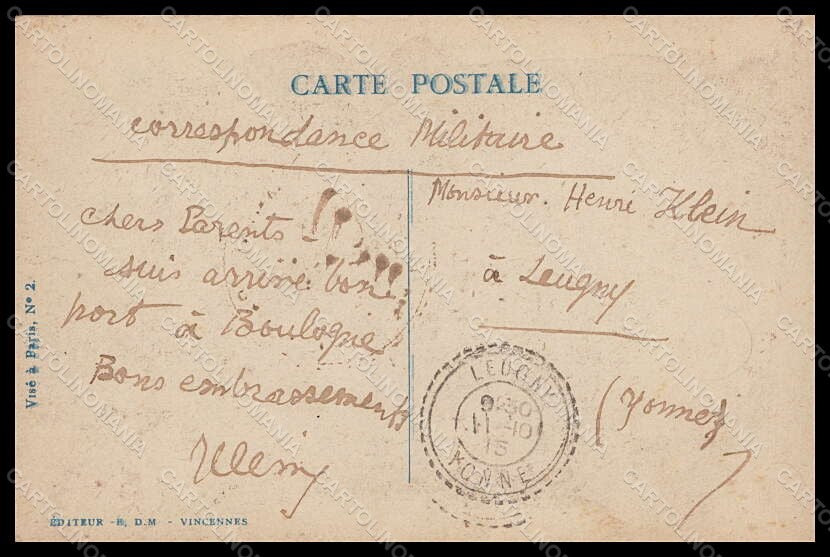 CARTE POSTALE
correspondance Militaire
Chers Parents
suis arrivé bon
port à Boulogne
Bons embrassements
Monsieur Henri Klein
à Leugny
(Yonne)
LEUGNY
9-30
11-10
15
YONNE
Visé à Paris, N° 2.
ÉDITEUR -E. D.M - VINCENNES
CARTOLINOMANIA